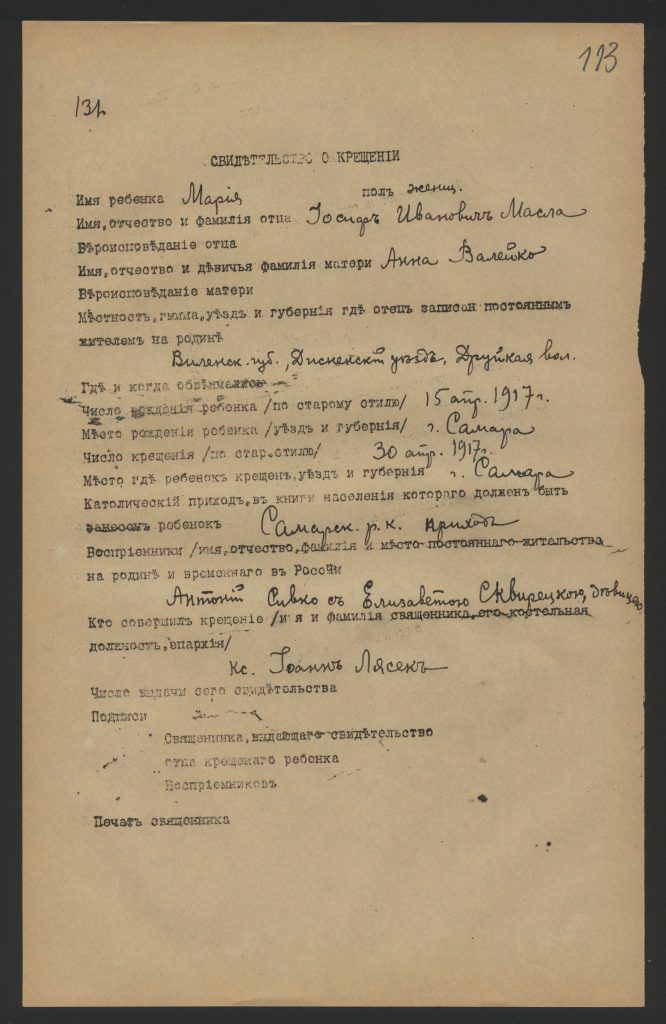 113
131.
СВИДѢТЕЛЬСТВО О КРЕЩЕНІИ
Имя ребенка Марія полъ женщ.
Имя, отчество и фамилія отца Іосифъ Ивановичъ Масла
Вѣроисповѣданіе отца
Имя, отчество и дѣвичья фамилія матери Анна Валейко
Вѣроисповѣданіе матери
Мѣстность, гмина, уѣздъ и губернія гдѣ отецъ записан постояннымъ
жителемъ на родинѣ
Виленск. губ., Дисненскій уѣздъ, Друйская вол.
Гдѣ и когда обвѣнчались
Число рожденія ребенка /по старому стилю/ 15 апр. 1917 г.
Мѣсто рожденія ребенка /уѣздъ и губернія/ г. Самара
Число крещенія /по стар.стилю/ 30 апр. 1917 г.
Мѣсто гдѣ ребенокъ крещен, уѣздъ и губернія г. Самара
Католическій приходъ, въ книги населенія котораго должен быть
занесен ребенокъ Самарск. р. к. приходъ
Воспріемники /имя, отчество, фамилія и мѣсто постояннаго жительства
на родинѣ и временнаго въ Россіи
Антоній Сивко съ Елизаветою Сквирецкою, дѣвицею.
Кто совершилъ крещеніе /имя и фамилія священника, его костельная
должность, епархія/
Кс. Іоаннъ Лясекъ
Число выдачи сего свидѣтельства
Подписи
Священника, выдающаго свидѣтельство
отца крещенаго ребенка
Воспріемниковъ
Печать священника